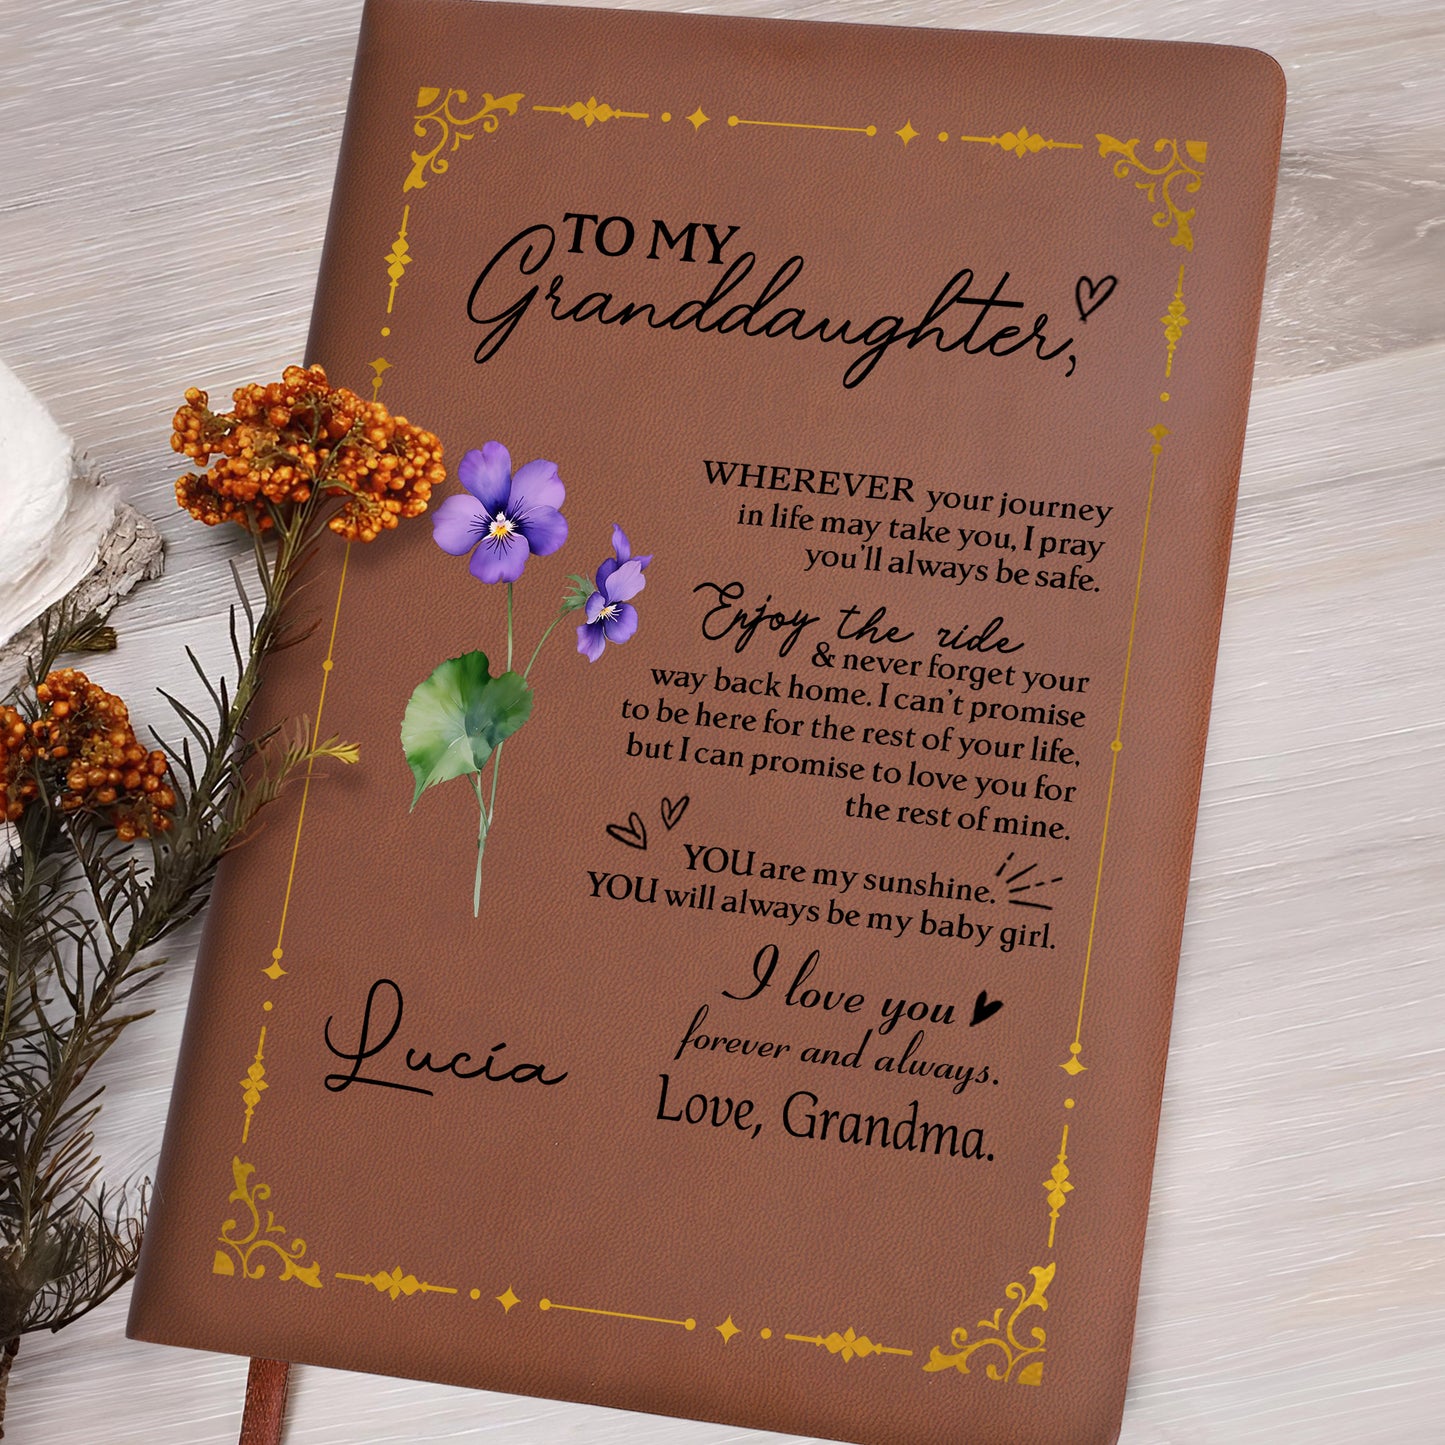 TO MY
Granddaughter,
WHEREVER your journey
in life may take you, I pray
you'll always be safe.
Enjoy the ride
& never forget your
way back home. I can't promise
to be here for the rest of your life,
but I can promise to love you for
the rest of mine.
YOU are my sunshine.
YOU will always be my baby girl.
I love you
forever and always.
Love, Grandma.
Lucía